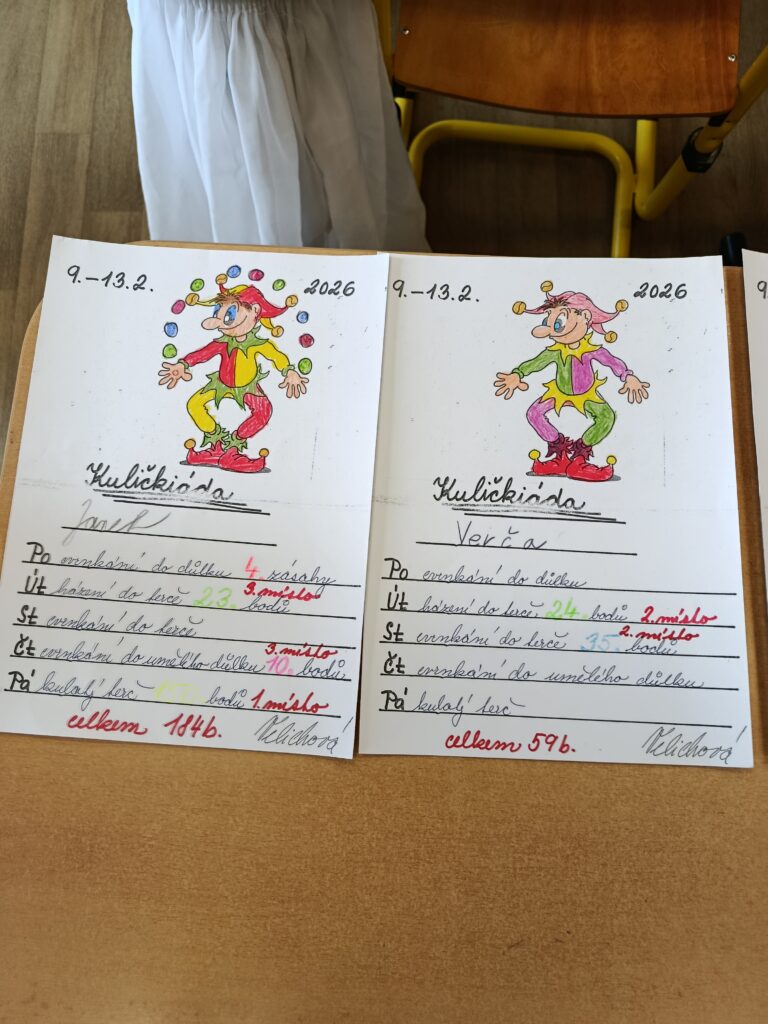 9.–13.2. 2026
Kuličkiáda
Po cvrnkání do důlku 4. zásahy
Út házení do terče 23. bodů 3. místo
St cvrnkání do terče
Čt cvrnkání do umělého důlku 10. bodů 3. místo
Pá kulatý terč bodů 1. místo
celkem 184b. Velichová
9.–13.2. 2026
Kuličkiáda
Verča
Po cvrnkání do důlku
Út házení do terče 24. bodů 2. místo
St cvrnkání do terče 35. bodů 2. místo
Čt cvrnkání do umělého důlku
Pá kulatý terč
celkem 59b. Velichová
9